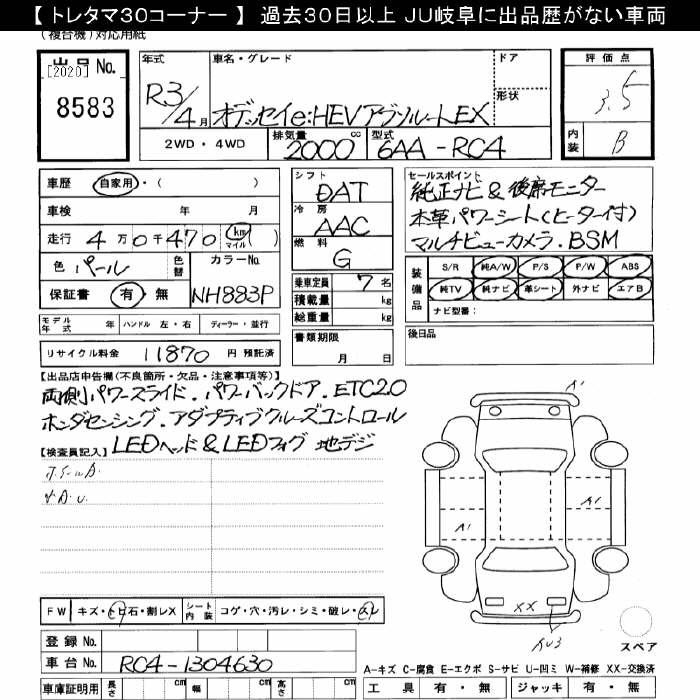 【 トレタマ30コーナー 】 過去30日以上 JU岐阜に出品歴がない車両
（複合機）対応用紙
出品No.
[2020]
8583
年式
R3/4月
車名・グレード
ドア
形状
オデッセイe:HEVアブソルートEX
2WD ・ 4WD
排気量
2000
cc
型式
6AA-RC4
評価点
3.5
内装
B
車歴
自家用・（ ）
車検 年 月
走行 4万0千470 km マイル ( )
色 パール
色替
カラーNo.
NH883P
保証書 有・無
シフト
DAT
冷房
AAC
燃料
G
乗車定員 7名
積載量 kg
総重量 kg
セールスポイント
純正ナビ&後席モニター
本革パワーシート(ヒーター付)
マルチビューカメラ.BSM
装備品
S/R 純A/W P/S P/W ABS
純TV 純ナビ 革シート 外ナビ エアB
ナビ型番：
モデル年式 年 ハンドル 左・右 ディーラー・並行
書類期限
月 日
後日品
リサイクル料金 11870 円 預託済
【出品店申告欄(不良箇所・欠品・注意事項等)】
両側パワースライド.パワーバックドア.ETC2.0
ホンダセンシング.アダプティブクルーズコントロール
LEDヘッド&LEDフォグ 地デジ
【検査員記入】
A1
A1
A1
XX
AU3
FW キズ・ヒビ石・割レX
シート内装 コゲ・穴・汚レ・シミ・破レ・スレ
登録No.
車台No. RC4-1304630
スペア
A-キズ C-腐食 E-エクボ S-サビ U-凹ミ W-補修 XX-交換済
車庫証明用 長さ cm 幅 cm 高さ cm
工具 有・無 ジャッキ 有・無